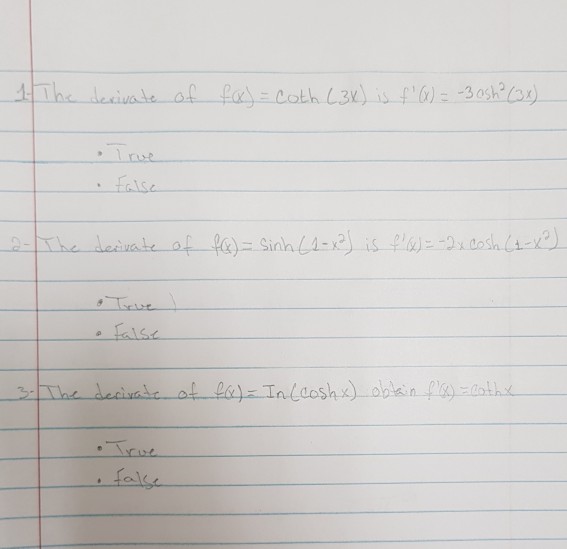 1- The derivate of f(x) = coth (3x) is f'(x) = -3 csh²(3x)
• True
• False
2- The derivate of f(x) = sinh (1-x²) is f'(x) = -2x cosh (1-x²)
• True
• False
3- The derivate of f(x) = In (cosh x) obtain f'(x) = coth x
• True
• False